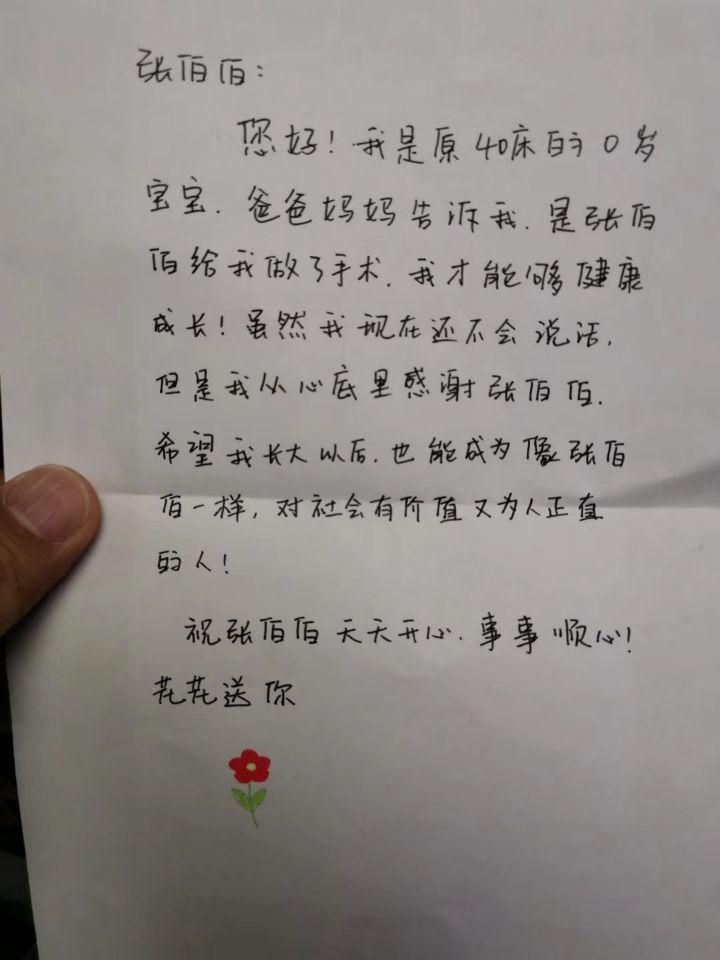 张伯伯:
您好!我是原40床的0岁
宝宝.爸爸妈妈告诉我.是张伯
伯给我做了手术.我才能够健康
成长!虽然我现在还不会说话.
但是我从心底里感谢张伯伯.
希望我长大以后.也能成为像张伯
伯一样,对社会有价值又为人正直
的人!
祝张伯伯天天开心.事事顺心!
花花送你